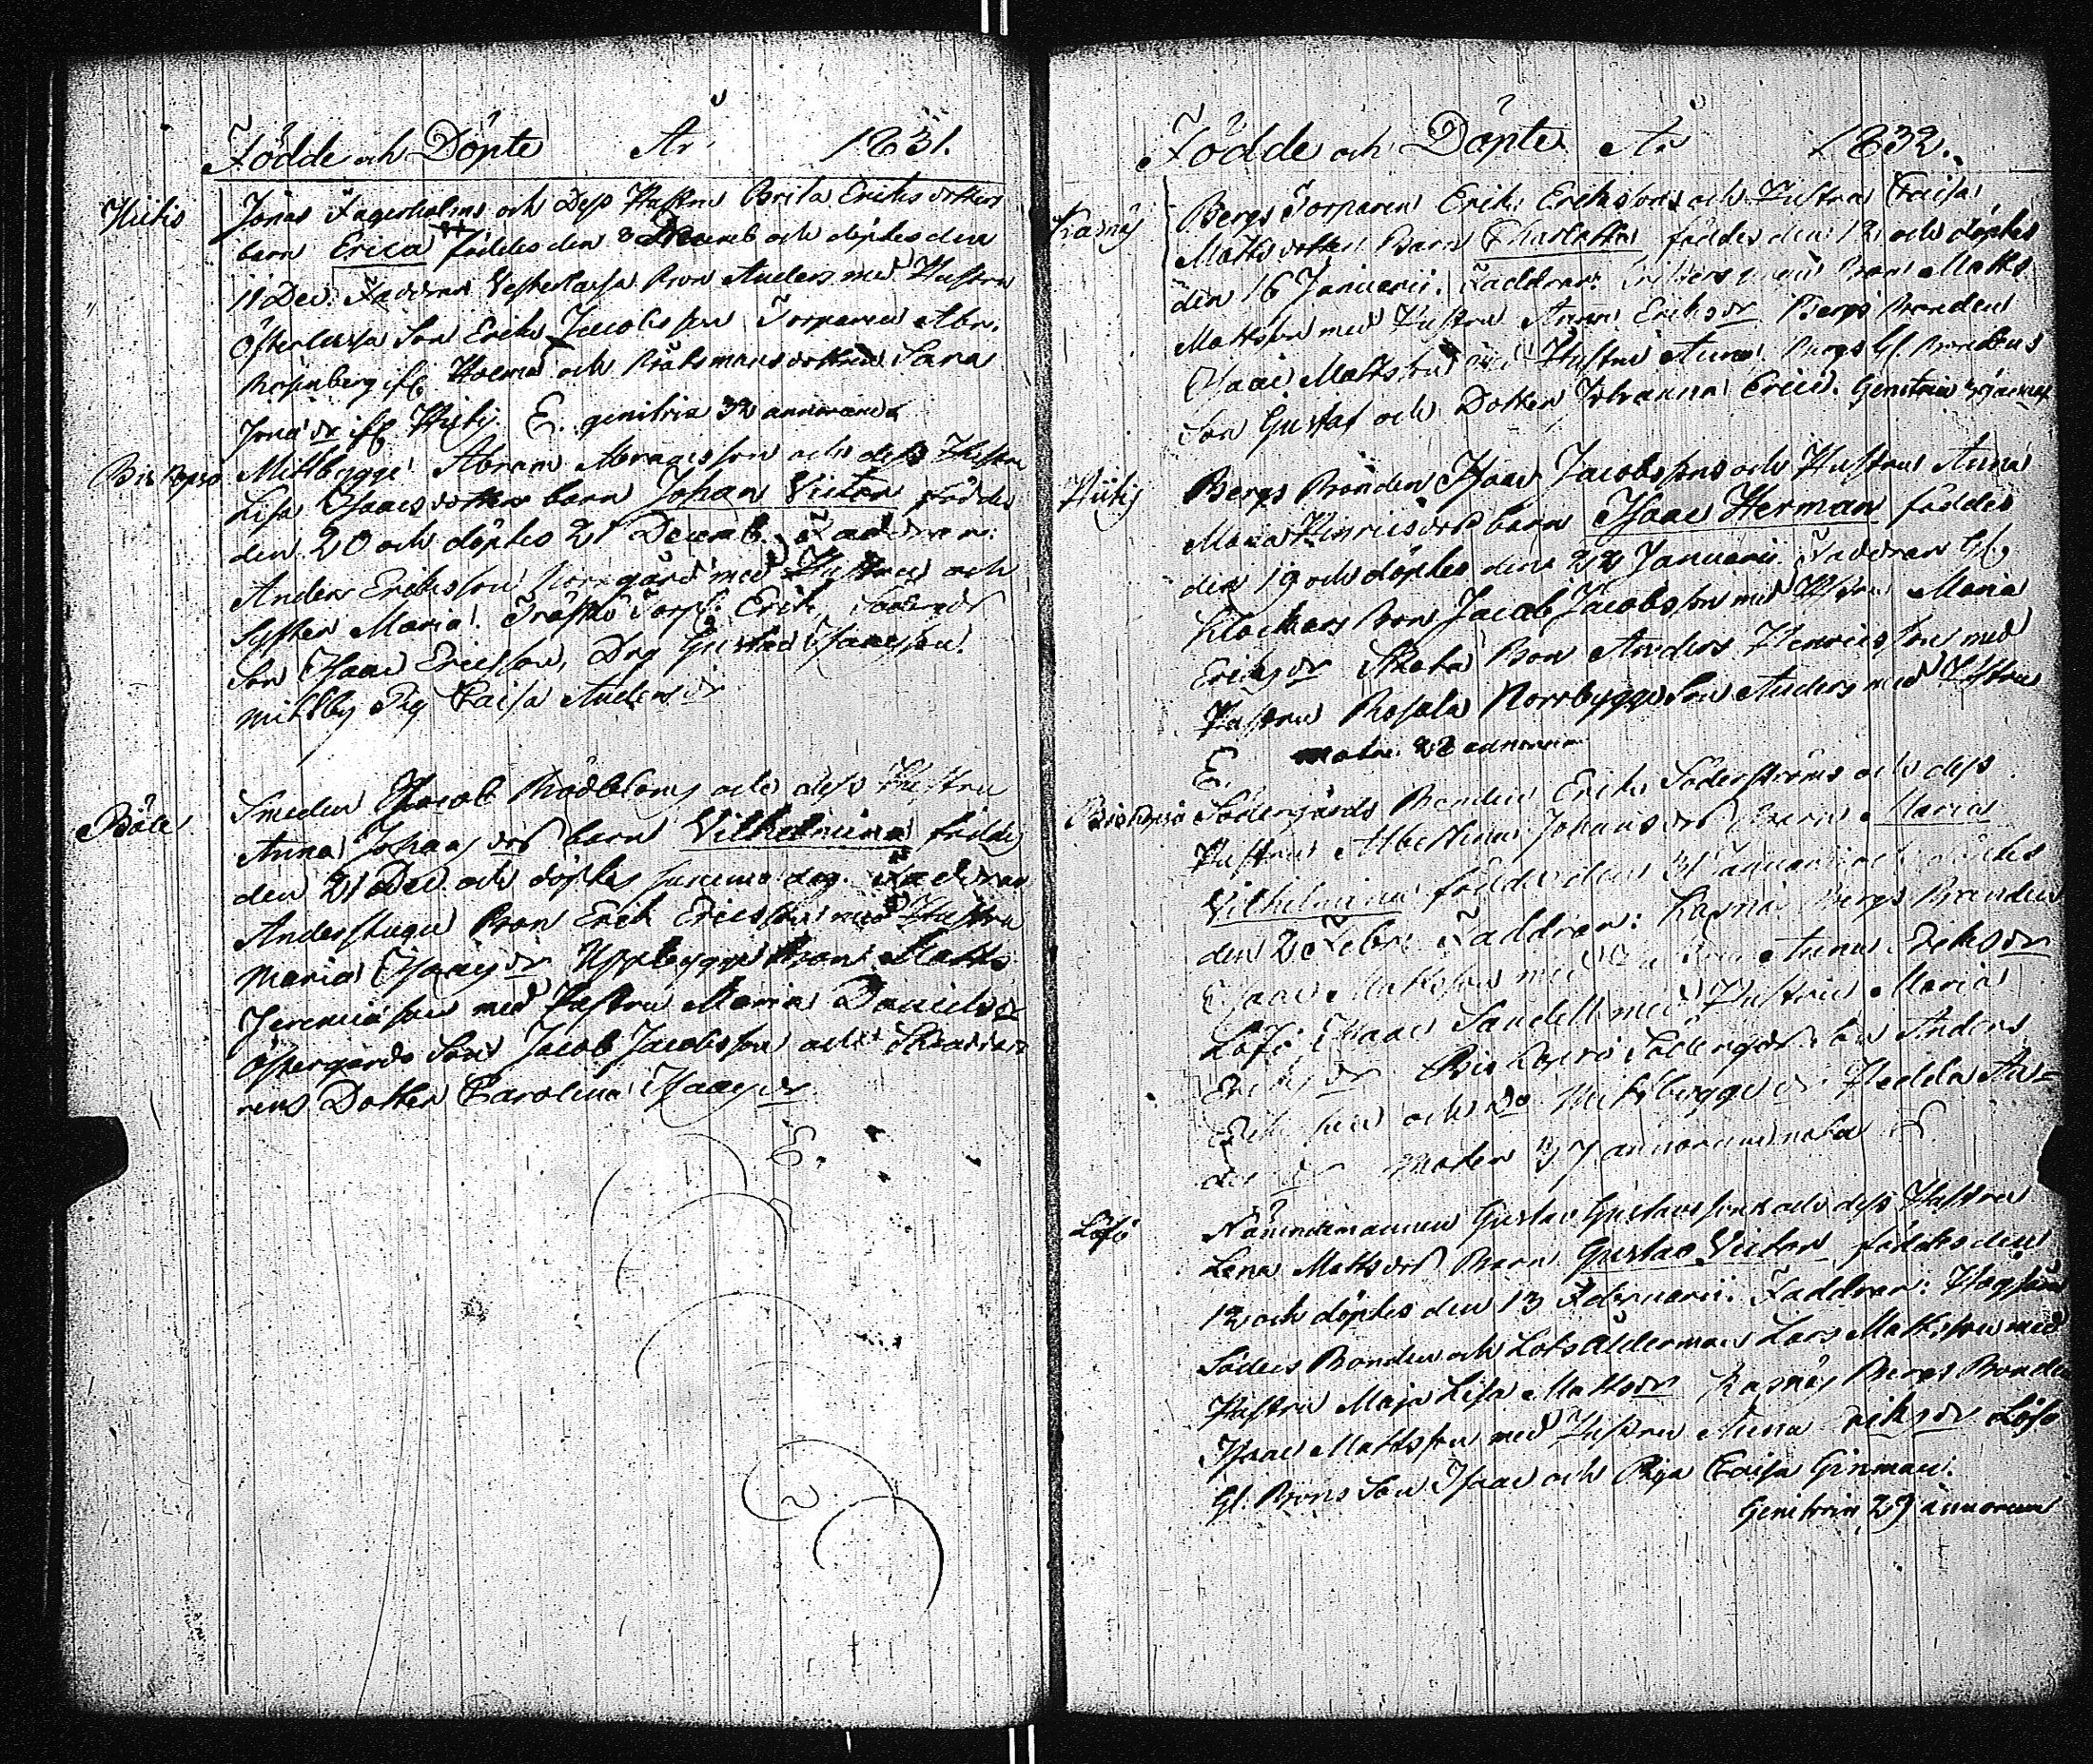 Födde och Döpte År 1831.
Hitis
Jonas Fagerholms och Dess Hustru Brita Ericksdotters
barn Erica föddes den 8 Decemb och döptes den
11 Dec. Faddrar Vesterlassa Bon Anders med Hustru
Österlassa Son Erik Jacobsson Torparen Abr.
Rosenberg ifr Holma och Båtsmansdottren Sara
Jona dr ifr Hitis E. genitrix 32 annorum
Biskopsö
Mittbygge Abram Abramsson och dess Hustru
Lisa Isaacsdotters barn Johan Victor föddes
den 20 och döptes 21 Decemb. Faddrar:
Anders Eriksson Norrgård med Hustru och
Syster Maria. Träskö Torp: Erik
Son Isaac Ericsson, Drg Gustav Isaacsson
mittby Pig Caisa Anders dr
Böle
Smeden Jacob Rödbloms och dess Hustru
Anna Johans dr barn Vilhelmina föddes
den 21 Dec och döptes samma dag. Faddrar
Anderstugu Bon Erik Ericsson med Hustru
Maria Isaacs dr Uppbygge Bon Matts
Jeremiasson med Hustru Maria Daniels dr
Östergårds Son Jacob Jacobsson och Skräddarens
Dotter Carolina Isaacs dr
E.
Födde och Döpte År 1832.
Kasnäs
Bergs Torparen Erik Erikssons och Hustru Caisa
Mattsdotters Barn Charlotta föddes den 12 och döptes
den 16 Januarii. Faddrar: Bon Matts
Mattsson med Hustru Anna Eriks dr Bergs Bonden
Isaac Mattsson med Hustru Anna Bergs Gl. Bondens
Son Gustaf och Dotter Johanna Erics. Genitrix
Hitis
Bergs Bonden Isaac Jacobssons och Hustru Anna
Maria Hinricsdrs barn Isaac Herman föddes
den 19 och döptes den 22 Januarii Faddrar Gl.
Klockars Bon Jacob Jacobsson med Hustru Maria
Eriks dr Bon Anders Henricsson med
Hustru Rosala Norrbygge Son Anders med Hustru
E. mater 28 annorum
Biskopsö
Södergårds Bonden Erik Söderströms och dess
Hustru Albertina Johansdrs Barn Maria
Vilhelmina föddes den 31 Januarii och döptes
den 2 Febr: Faddrar: Kasnäs Bergs Bonden
Isaac Mattsson med Hustru Anna Eriks dr
Löfö Isaac Sandell med Hustru Maria
Eriks dr Biskopsö Södergårds Son Anders
Eriksson och Mittbygge dr Hedda An-
ders dr Moder 37 annorum nata
Löfö
Nämndemannen Gustav Gustavssons och dess Hustru
Lena Mattsdrs Barn Gustav Victor föddes den
12 och döptes den 13 Februarii. Faddrar: Högsåra
Söders Bonden och Lots Ålderman Lars Mattsson med
Hustru Maja Lisa Matts dr Kasnäs Bergs Bonden
Isaac Mattsson med Hustru Anna Eriks dr Löfö
Gl. Bons Son Isaac och Piga Caisa Ginman.
Genitrix 29 annorum